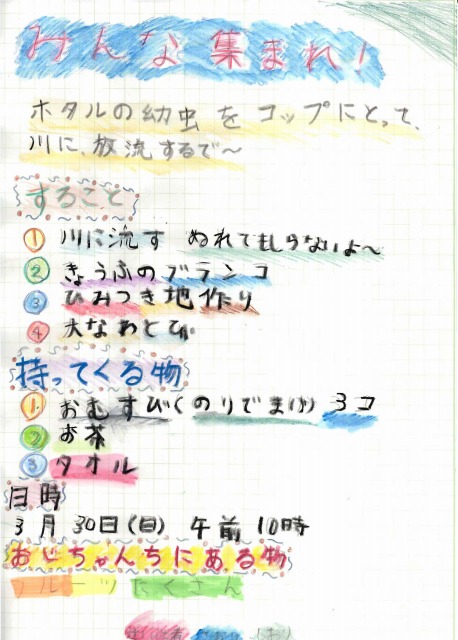 みんな集まれ!
ホタルの幼虫をコップにとって、
川に、放流するで〜
すること
① 川に流す ぬれてもしらないよ〜
② きょうふのブランコ
③ ひみつき地作り
④ 大なわとび
持ってくる物
① おむすび(のりでまけ) 3コ
② お茶
③ タオル
日時
3月30日(日) 午前10時
おじちゃんちにある物
フルーツたくさん